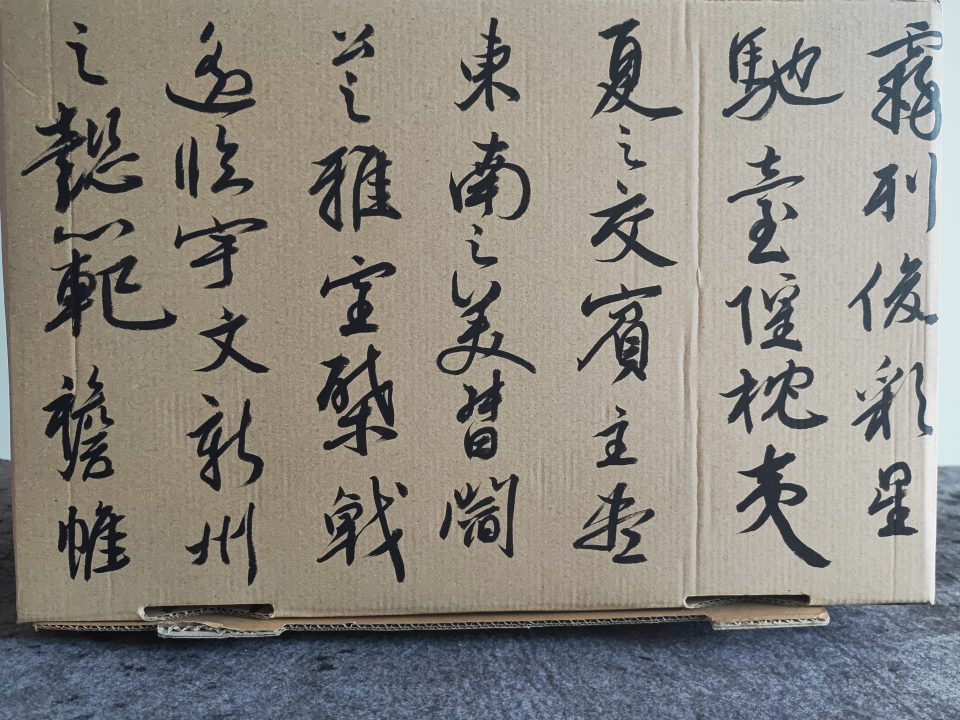 霧列俊彩星
馳臺隍枕夷
夏之交賓主盡
東南之美督閻
公之雅望棨戟
遙臨宇文新州
之懿範襜帷